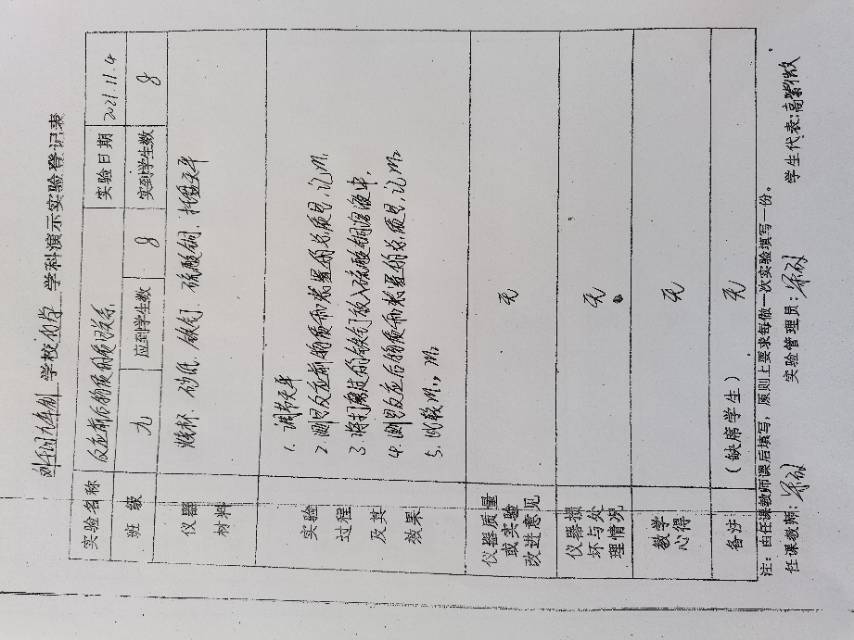 学校化学学科演示实验登记表
实验名称 反应前后物质的质量关系 实验日期 2021.11.4
班级 九 应到学生数 8 实到学生数 8
仪器
材料
烧杯、砂纸、铁钉、硫酸铜、托盘天平
实验
过程
及其
效果
1. 调节天平
2. 测量反应前物质和装置的总质量,记m₁
3. 将打磨过的铁钉放入硫酸铜溶液中,
4. 测量反应后物质和装置的总质量,记m₂
5. 比较m₁, m₂
仪器质量
或实验
改进意见
无
仪器损
坏与处
理情况
无
教学
心得
无
备注 (缺席学生) 无
注:由任课教师课后填写,原则上要求每做一次实验填写一份。
任课教师: 实验管理员: 学生代表:高